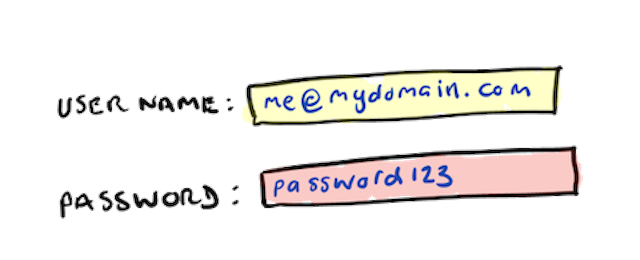 USER NAME: me@mydomain.com
PASSWORD: password123